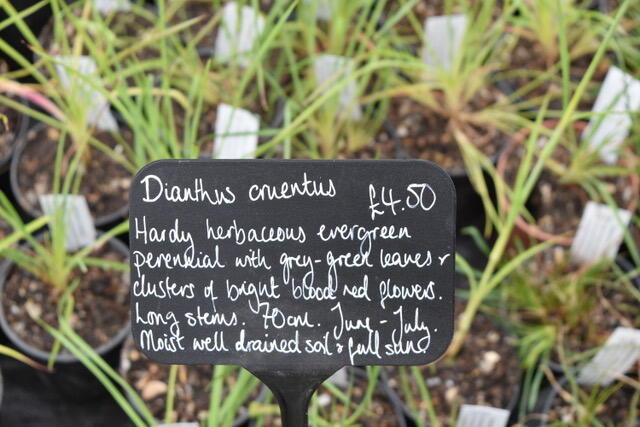 Dianthus cruentus £4.50
Hardy herbaceous evergreen
perennial with grey-green leaves &
clusters of bright blood red flowers.
Long stems. 70cm. June - July.
Moist well drained soil & full sun.